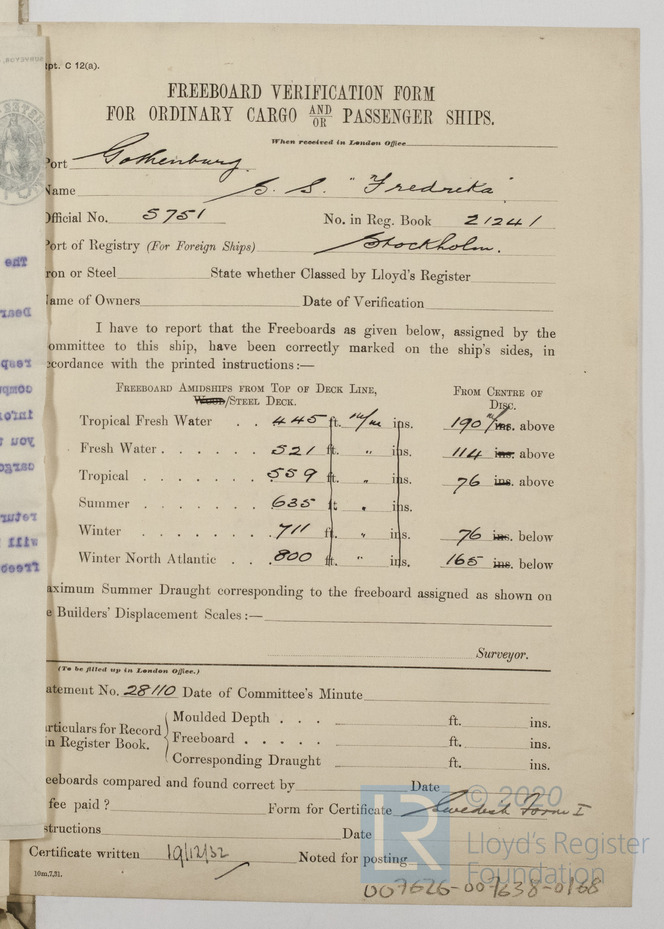 Rpt. C 12(a).
FREEBOARD VERIFICATION FORM
FOR ORDINARY CARGO AND/OR PASSENGER SHIPS.
When received in London Office
Port Gothenburg.
Name S. S. "Fredrika"
Official No. 5751 No. in Reg. Book 21241
Port of Registry (For Foreign Ships) Stockholm.
ron or Steel State whether Classed by Lloyd's Register
Name of Owners Date of Verification
I have to report that the Freeboards as given below, assigned by the
ommittee to this ship, have been correctly marked on the ship's sides, in
ccordance with the printed instructions:—
FREEBOARD AMIDSHIPS FROM TOP OF DECK LINE, FROM CENTRE OF
WOOD/STEEL DECK. DISC.
Tropical Fresh Water . . 445 ft. m/m ins. 190 m/m ins. above
Fresh Water . . . . . . 521 ft. " ins. 114 ins. above
Tropical . . . . . . . 559 ft. " ins. 76 ins. above
Summer . . . . . . . 635 ft. " ins.
Winter . . . . . . . 711 ft. " ins. 76 ins. below
Winter North Atlantic . . . 800 ft. " ins. 165 ins. below
aximum Summer Draught corresponding to the freeboard assigned as shown on
e Builders' Displacement Scales :—
Surveyor.
(To be filled up in London Office.)
atement No. 28110 Date of Committee's Minute
articulars for Record in Register Book.
Moulded Depth . . . ft. ins.
Freeboard . . . . . ft. ins.
Corresponding Draught ft. ins.
eeboards compared and found correct by Date
fee paid ? Form for Certificate Swedish Form I
structions Date
Certificate written 19/12/32 Noted for posting
10m,7,31.
© 2020
LR
Lloyd's Register
Foundation
007626-007638-0168